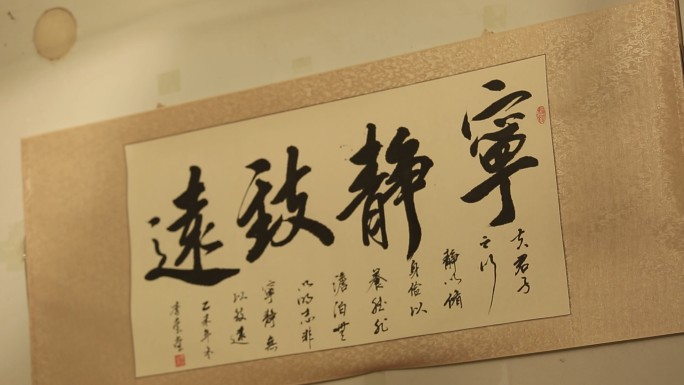 寧靜致遠
夫君子
之行
靜以脩
身儉以
養德非
澹泊無
以明志非
寧靜無
以致遠
乙未年冬